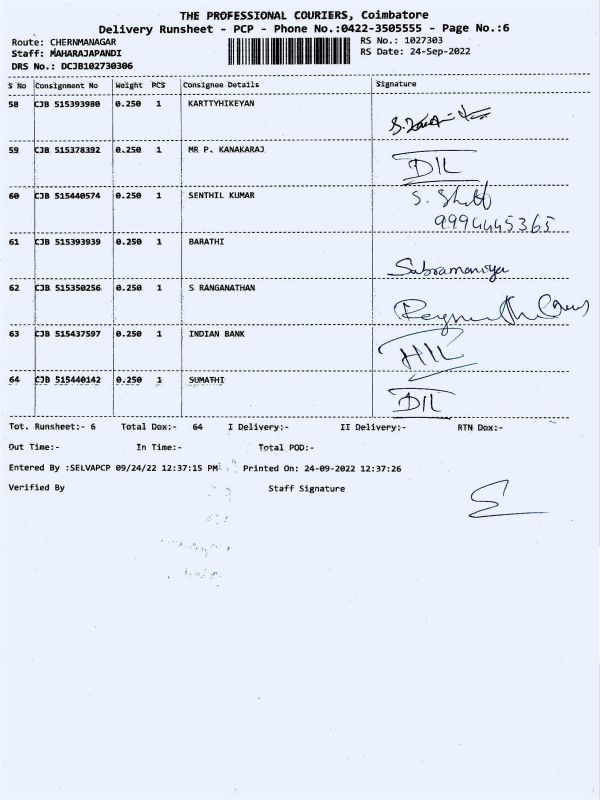 THE PROFESSIONAL COURIERS, Coimbatore
Delivery Runsheet - PCP - Phone No.:0422-3505555 - Page No.:6
Route: CHERNMANAGAR
RS No.: 1027303
Staff: MAHARAJAPANDI
RS Date: 24-Sep-2022
DRS No.: DCJB102730306
S No Consignment No Weight PCS Consignee Details Signature
58 CJB 515393980 0.250 1 KARTTYHIKEYAN
59 CJB 515378392 0.250 1 MR P. KANAKARAJ
DIL
60 CJB 515440574 0.250 1 SENTHIL KUMAR
9994445365
61 CJB 515393939 0.250 1 BARATHI
Sabramaniya
62 CJB 515350256 0.250 1 S RANGANATHAN
63 CJB 515437597 0.250 1 INDIAN BANK
HIL
64 CJB 515440142 0.250 1 SUMATHI
DIL
Tot. Runsheet:- 6 Total Dox:- 64 I Delivery:- II Delivery:- RTN Dox:-
Out Time:- In Time:- Total POD:-
Entered By :SELVAPCP 09/24/22 12:37:15 PM Printed On: 24-09-2022 12:37:26
Verified By Staff Signature